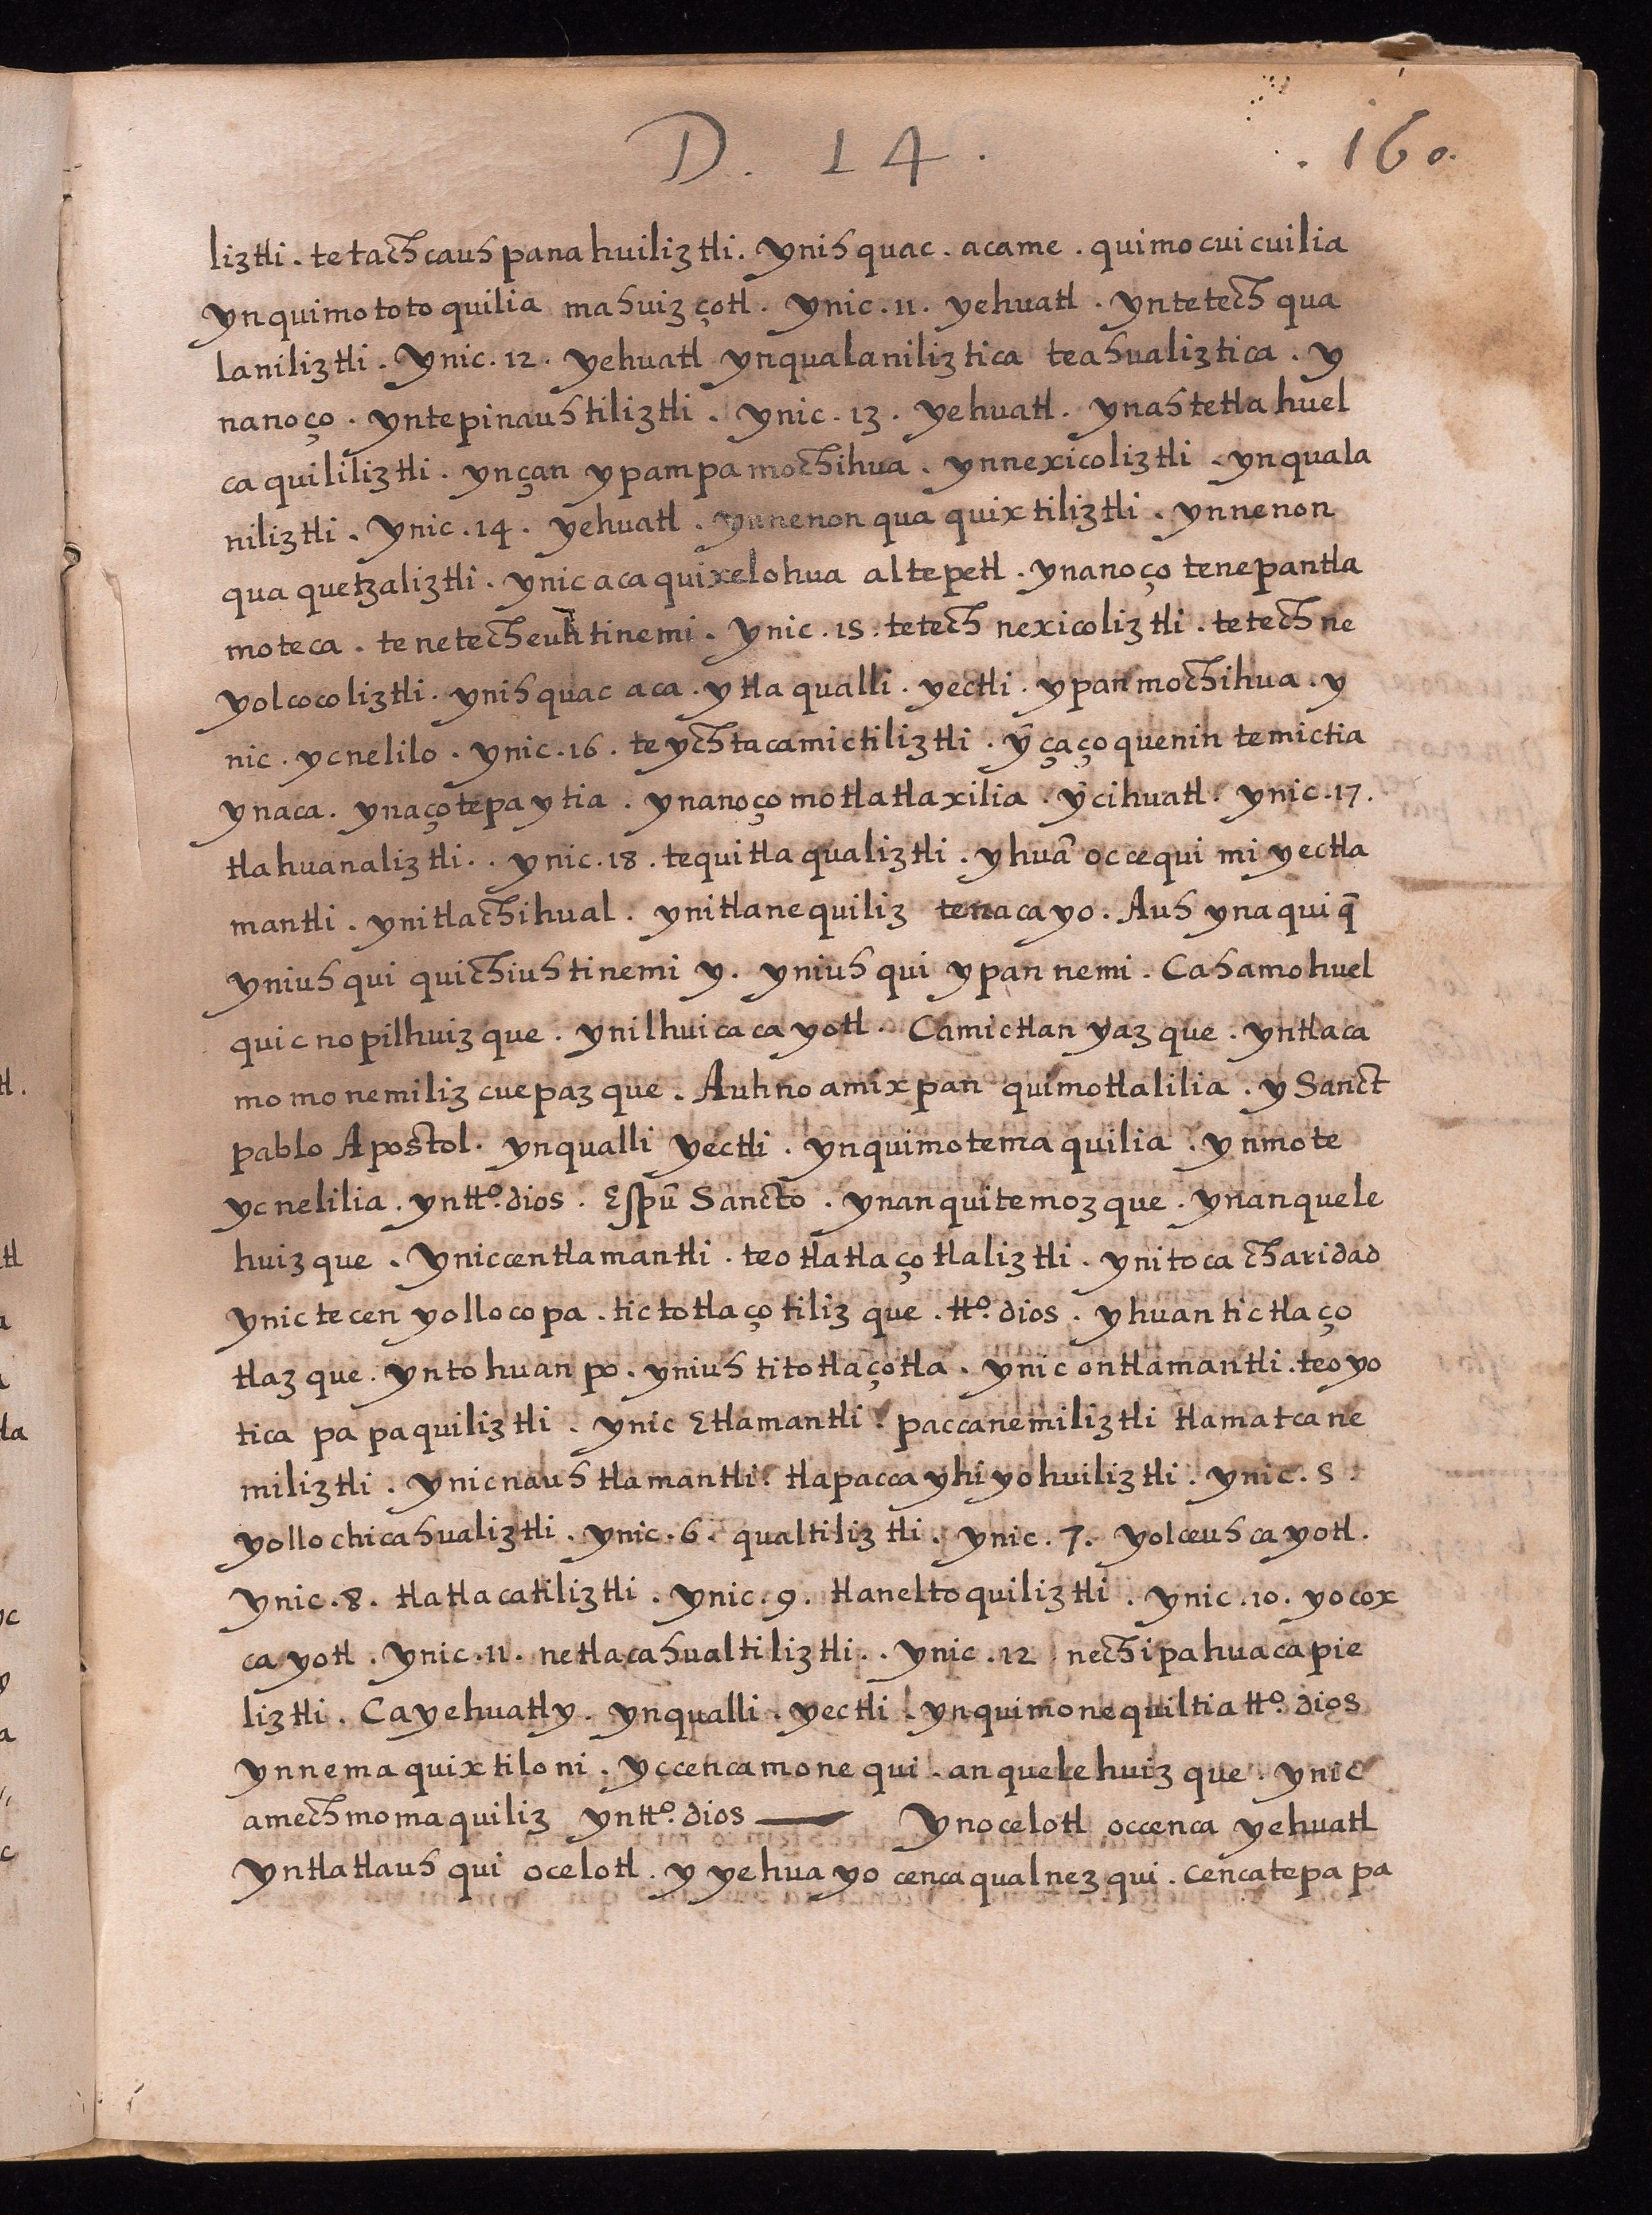 D. 14.
. 160.
liztli. tetachcauhpanahuiliztli. ynihquac. acame. quimocuicuilia
ynquimototoquilia mahuizçotl. ynic. 11. yehuatl. yntetechqua
laniliztli. ynic. 12. yehuatl ynqualaniliztica teahualiztica. y
nanoço. yntepinauhtiliztli. ynic. 13. yehuatl. ynahtetlahuel
caquililiztli. ynçan ypampamochihua. ynnexicoliztli. ynquala
niliztli. ynic. 14. yehuatl. ynnenonquaquixtiliztli. ynnenon
quaquetzaliztli. ynicacaquixelohua altepetl. ynanoço tenepantla
moteca. tenetecheuhtinemi. ynic. 15. tetech nexicoliztli. tetechne
yolcocoliztli. ynihquac aca. ytla qualli. yectli. ypanmochihua. y
nic. ycnelilo. ynic. 16. teychtacamictiliztli. ȳçaçoquenin temictia
ynaca. ynaçotepaytia. ynanoçomotlatlaxilia. ȳcihuatl. ynic. 17.
tlahuanaliztli. . ynic. 18. tequitlaqualiztli. yhuā occequi miyectla
mantli. ynitlachihual. ynitlanequiliz tenacayo. Auh ynaquiq̄
yniuhqui quichiuhtinemi y. yniuhqui ypannemi. Cahamohuel
quicnopilhuizque. ynilhuicacayotl. Camictlan yazque. yntlaca
momonemilizcuepazque. Auhnoamixpan quimotlalilia. y Sanct
pablo Apostol. ynqualli yectli. ynquimotemaquilia. ynmote
ycnelilia. yntt.º dios. Espū Sancto. ynanquitemozque. ynanquele
huizque. yniccentlamantli. teotlatlaçotlaliztli. ynitoca charidad
ynictecenyollocopa. tictotlaçotilizque. tt.º dios. yhuantictlaço
tlazque. yntohuanpo. yniuhtitotlaçotla. ynic ontlamantli. teoyo
tica papaquiliztli. ynic Etlamantli. paccanemiliztli tlamatcane
miliztli. ynicnauhtlamantli. tlapaccayhiyohuiliztli. ynic. 5.
yollochicahualiztli. ynic. 6. qualtiliztli. ynic. 7. yolceuhcayotl.
ynic. 8. tlatlacatiliztli. ynic. 9. tlaneltoquiliztli. ynic. 10. yocox
cayotl. ynic. 11. netlacahualtiliztli. . ynic. 12 nechipahuacapie
liztli. Cayehuatly. ynqualli. yectli. ynquimonequiltia tt.º dios
ynnemaquixtiloni. yccencamonequi. anquelehuizque. ynic
amechmomaquiliz yntt.º dios — Ynocelotl occenca yehuatl
yntlatlauhqui ocelotl. y yehuayo cencaqualnezqui. cencatepapa